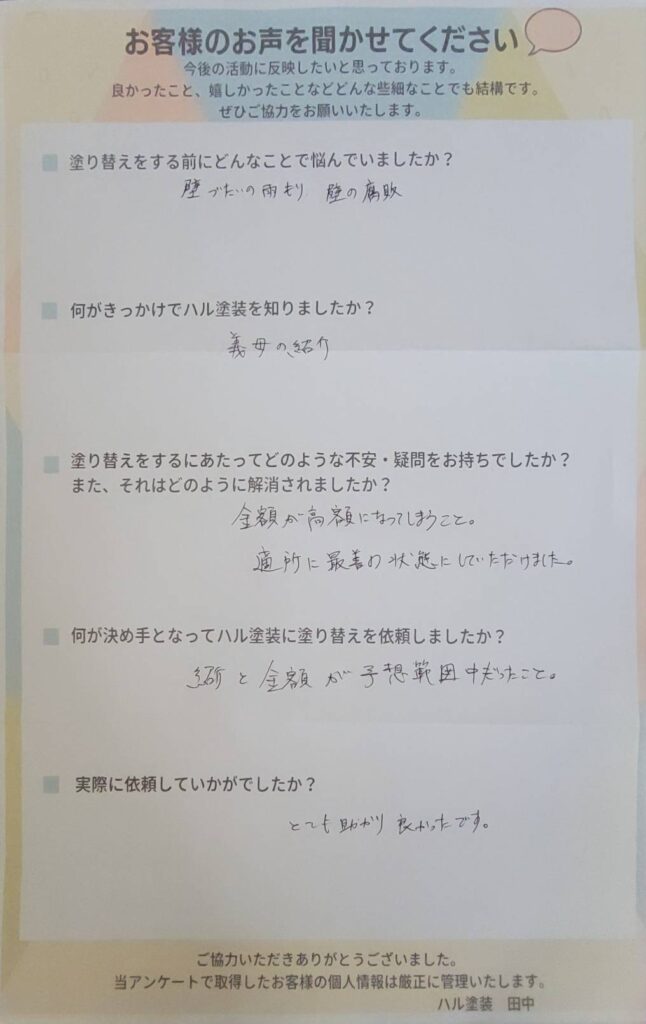 お客様のお声を聞かせてください
今後の活動に反映したいと思っております。
良かったこと、嬉しかったことなどどんな些細なことでも結構です。
ぜひご協力をお願いいたします。
塗り替えをする前にどんなことで悩んでいましたか？
壁づたいの雨もり 壁の腐敗
何がきっかけでハル塗装を知りましたか？
義母の紹介
塗り替えをするにあたってどのような不安・疑問をお持ちでしたか？
また、それはどのように解消されましたか？
金額が高額になってしまうこと。
適所に最善の状態にしていただけました。
何が決め手となってハル塗装に塗り替えを依頼しましたか？
と金額が予想範囲中だったこと。
実際に依頼していかがでしたか？
とても助かり良かったです。
ご協力いただきありがとうございました。
当アンケートで取得したお客様の個人情報は厳正に管理いたします。
ハル塗装 田中